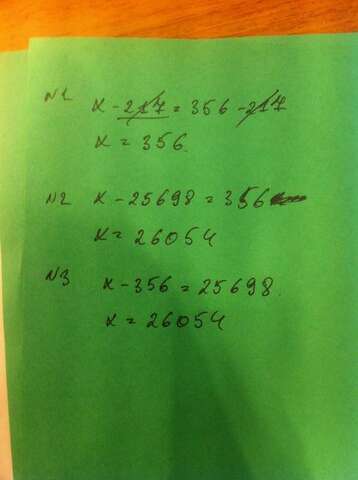 N1
x - 217 = 356 - 217
x = 356
N2 x - 25698 = 356
x = 26054
N3 x - 356 = 25698
x = 26054